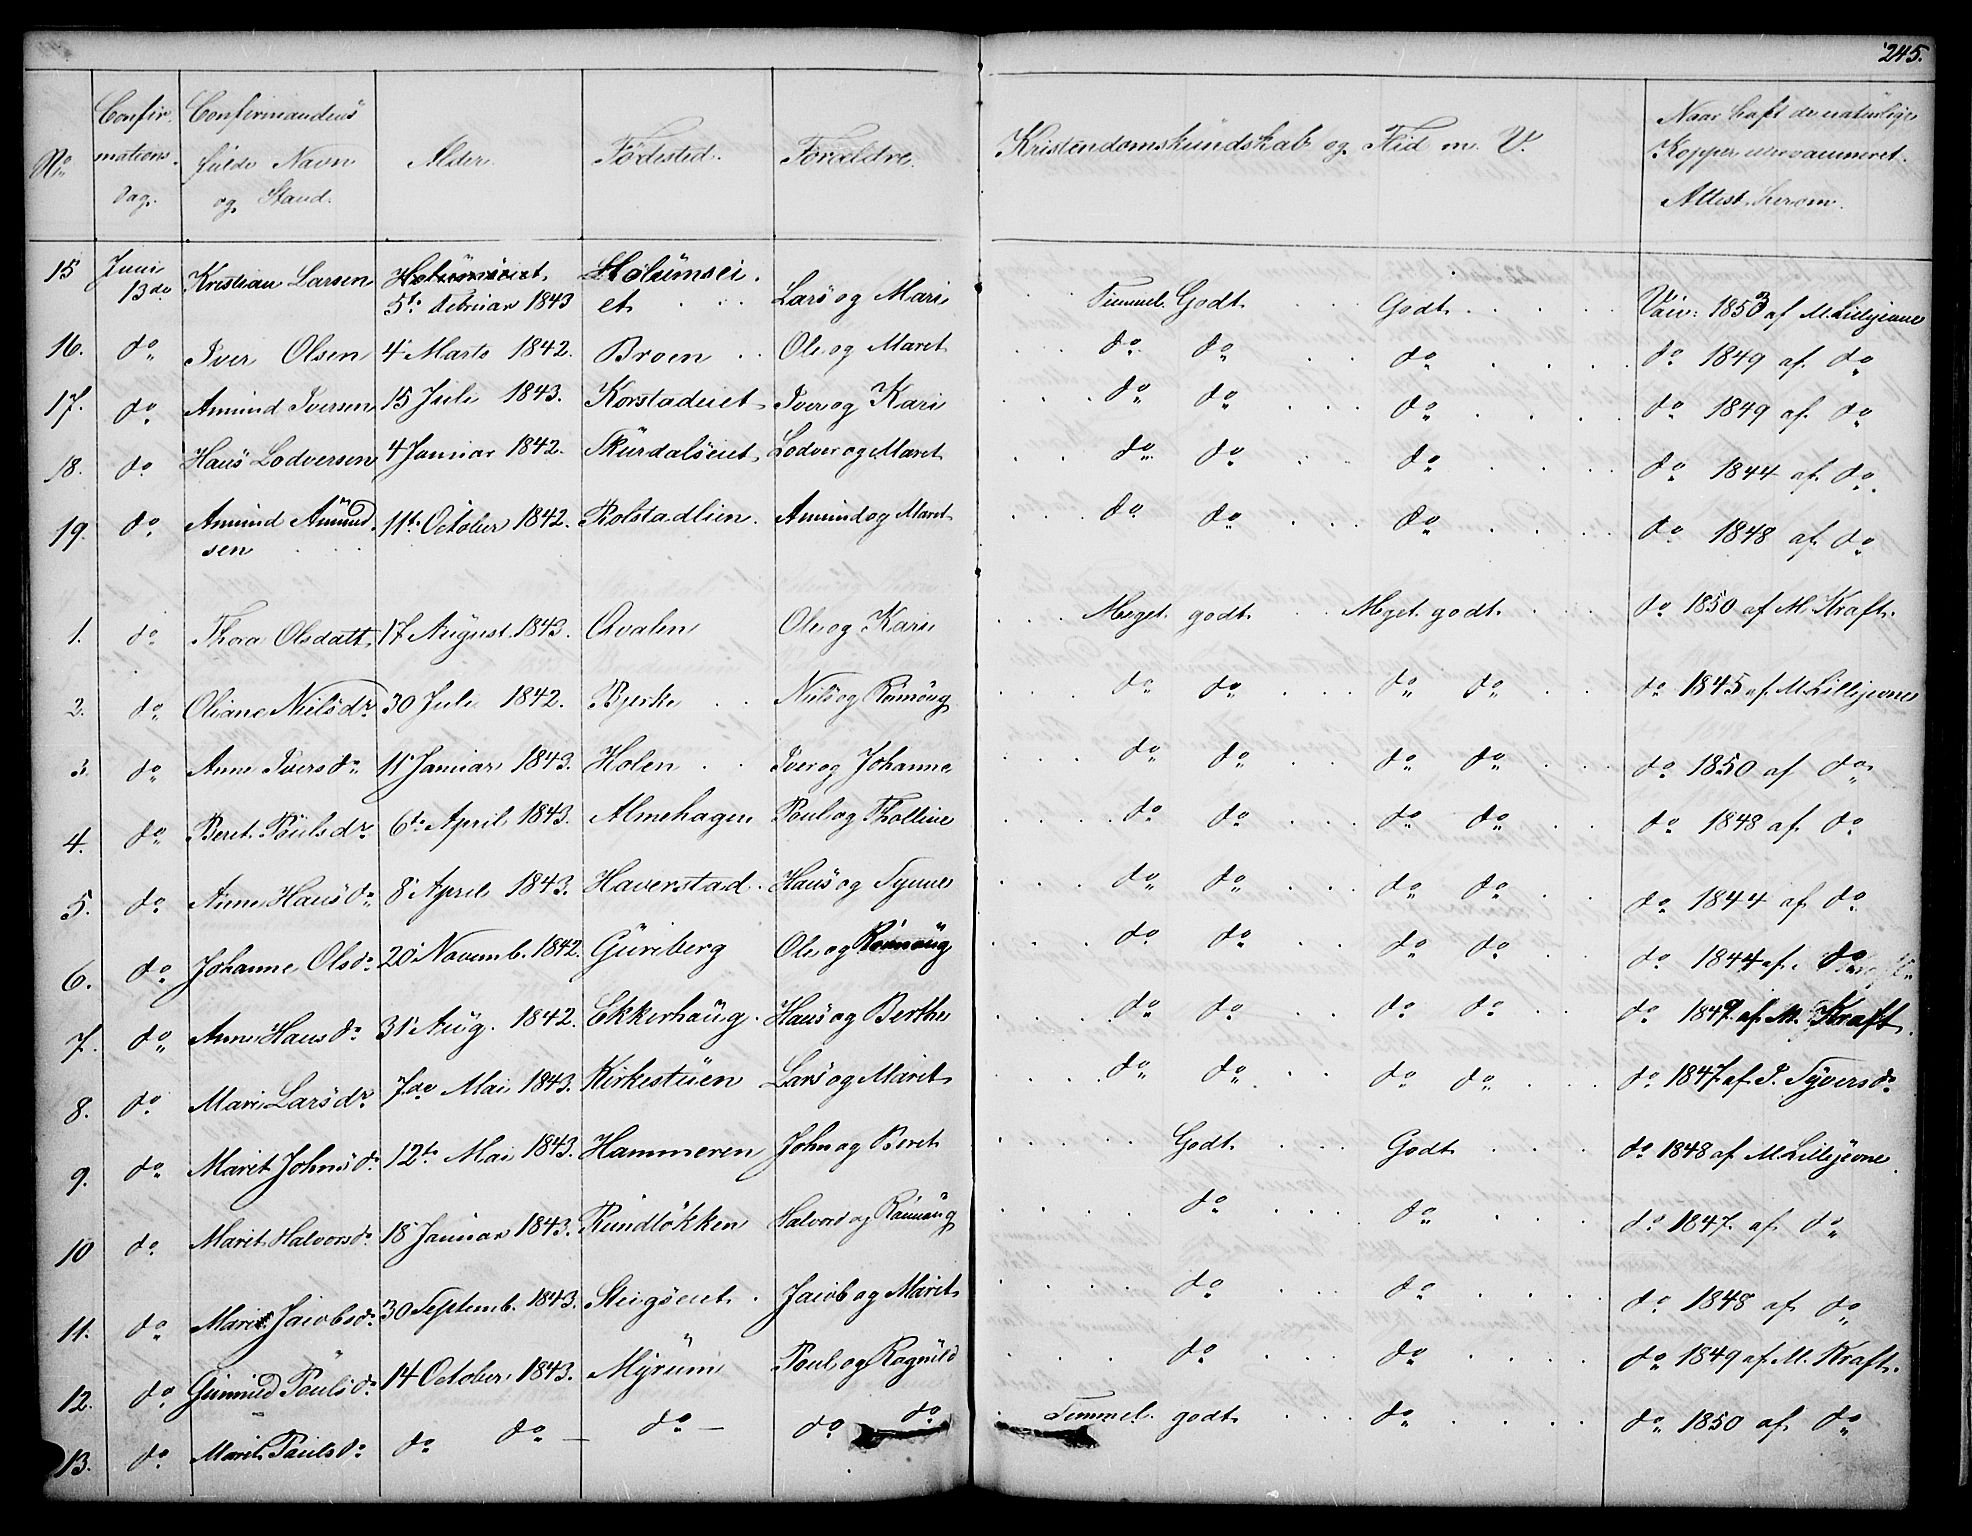 245.
No Confirmationsdag. Confirmandens fulde Navn og Stand. Alder. Fødested. Forældre. Kristendomskundskab og Flid m. V. Naar haft de naturlige Kopper eller vaccineret. Attest herom.
15 Juni 13de Kristian Larsen 5te Februar 1843 Holumseiet Lars og Mari Temmel. Godt Godt Vacc: 1853 af M. Lillejevne
16. do Iver Olsen 4 Marts 1842. Broen Ole og Maret do do do do 1849 af do
17. do Amund Iversen 15 Juli 1843. Korstadeiet Iver og Kari do do do do 1849 af do
18. do Hans Lodversen 4 Januar 1842. Skurdalseiet Lodver og Maret do do do do 1844 af do
19. do Amund Amundsen 11te October 1842. Rolstadlien. Amund og Maret do do do do 1848 af do
1. do Thora Olsdatt. 17 August 1843. Qvalen Ole og Kari Meget godt Meget godt do 1850 af M. Kraft.
2. do Oliane Nielsdr 30 Juli 1842. Bjerke Niels og Rønnoug do do do do do 1845 af M. Lillejevne
3. do Anne Iversdr 11 Januar 1843. Holen Iver og Johanne do do do do do 1850 af do
4. do Beret Poulsdr 6te April 1843. Almehagen Poul og Tholline do do do do do 1848 af do
5. do Anne Hansdr 8 April 1843. Haverstad Hans og Synne do do do do do 1844 af do
6. do Johanne Olsdr 20 Novemb. 1842. Guriberg Ole og Rønnoug do do do do do 1844 af do
7. do Anne Hansdr 31 Aug. 1842. Ekkerhaug Hans og Berthe do do do do do 1849 af M. Kraft
8. do Mari Larsdr 7de Mai 1843. Kirkestuen Lars og Marit do do do do do 1847 af P. Syversdr
9. do Maret Johnsdr 12te Mai 1843. Hammeren John og Beret Godt Godt do 1848 af M. Lillejevne
10 do Marit Halvorsdr 18 Januar 1843. Rundløkken Halvord og Rønnoug do do do 1847 af do
11. do Mari Jacobsdr 30 Septemb. 1843. Steigseiet Jacob og Marit do do do 1848 af do
12. do Gunnild Poulsdr 14 October 1843. Myrum Poul og Ragnild do do do 1849 af M. Kraft.
13. do Marit Paulsdr do do — do — do do Temmel. godt do do 1850 af do